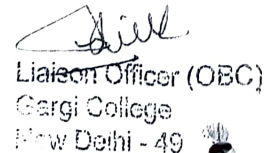 Liaison Officer (OBC)
Gargi College
New Delhi - 49